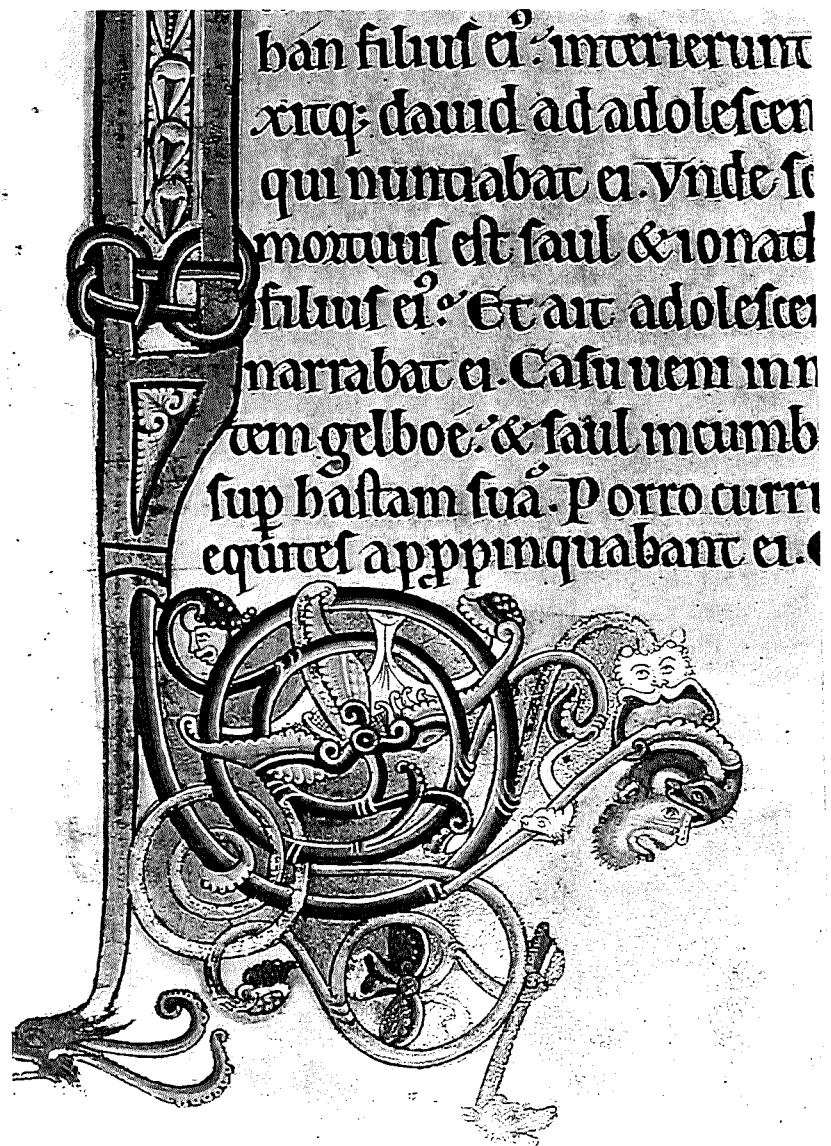 ban filiuſ eiꝰ: interierunt
xitq; dauid ad adoleſcen
qui nuntiabat ei. Vnde ſc
mortuuſ eſt ſaul & ionad
filiuſ eiꝰ: Et ait adoleſcen
narrabat ei. Caſu ueni inn
tem gelboe: & ſaul incumb
ſuꝑ haſtam ſuā. Porro curri
equiteſ aꝓpinquabant ei.